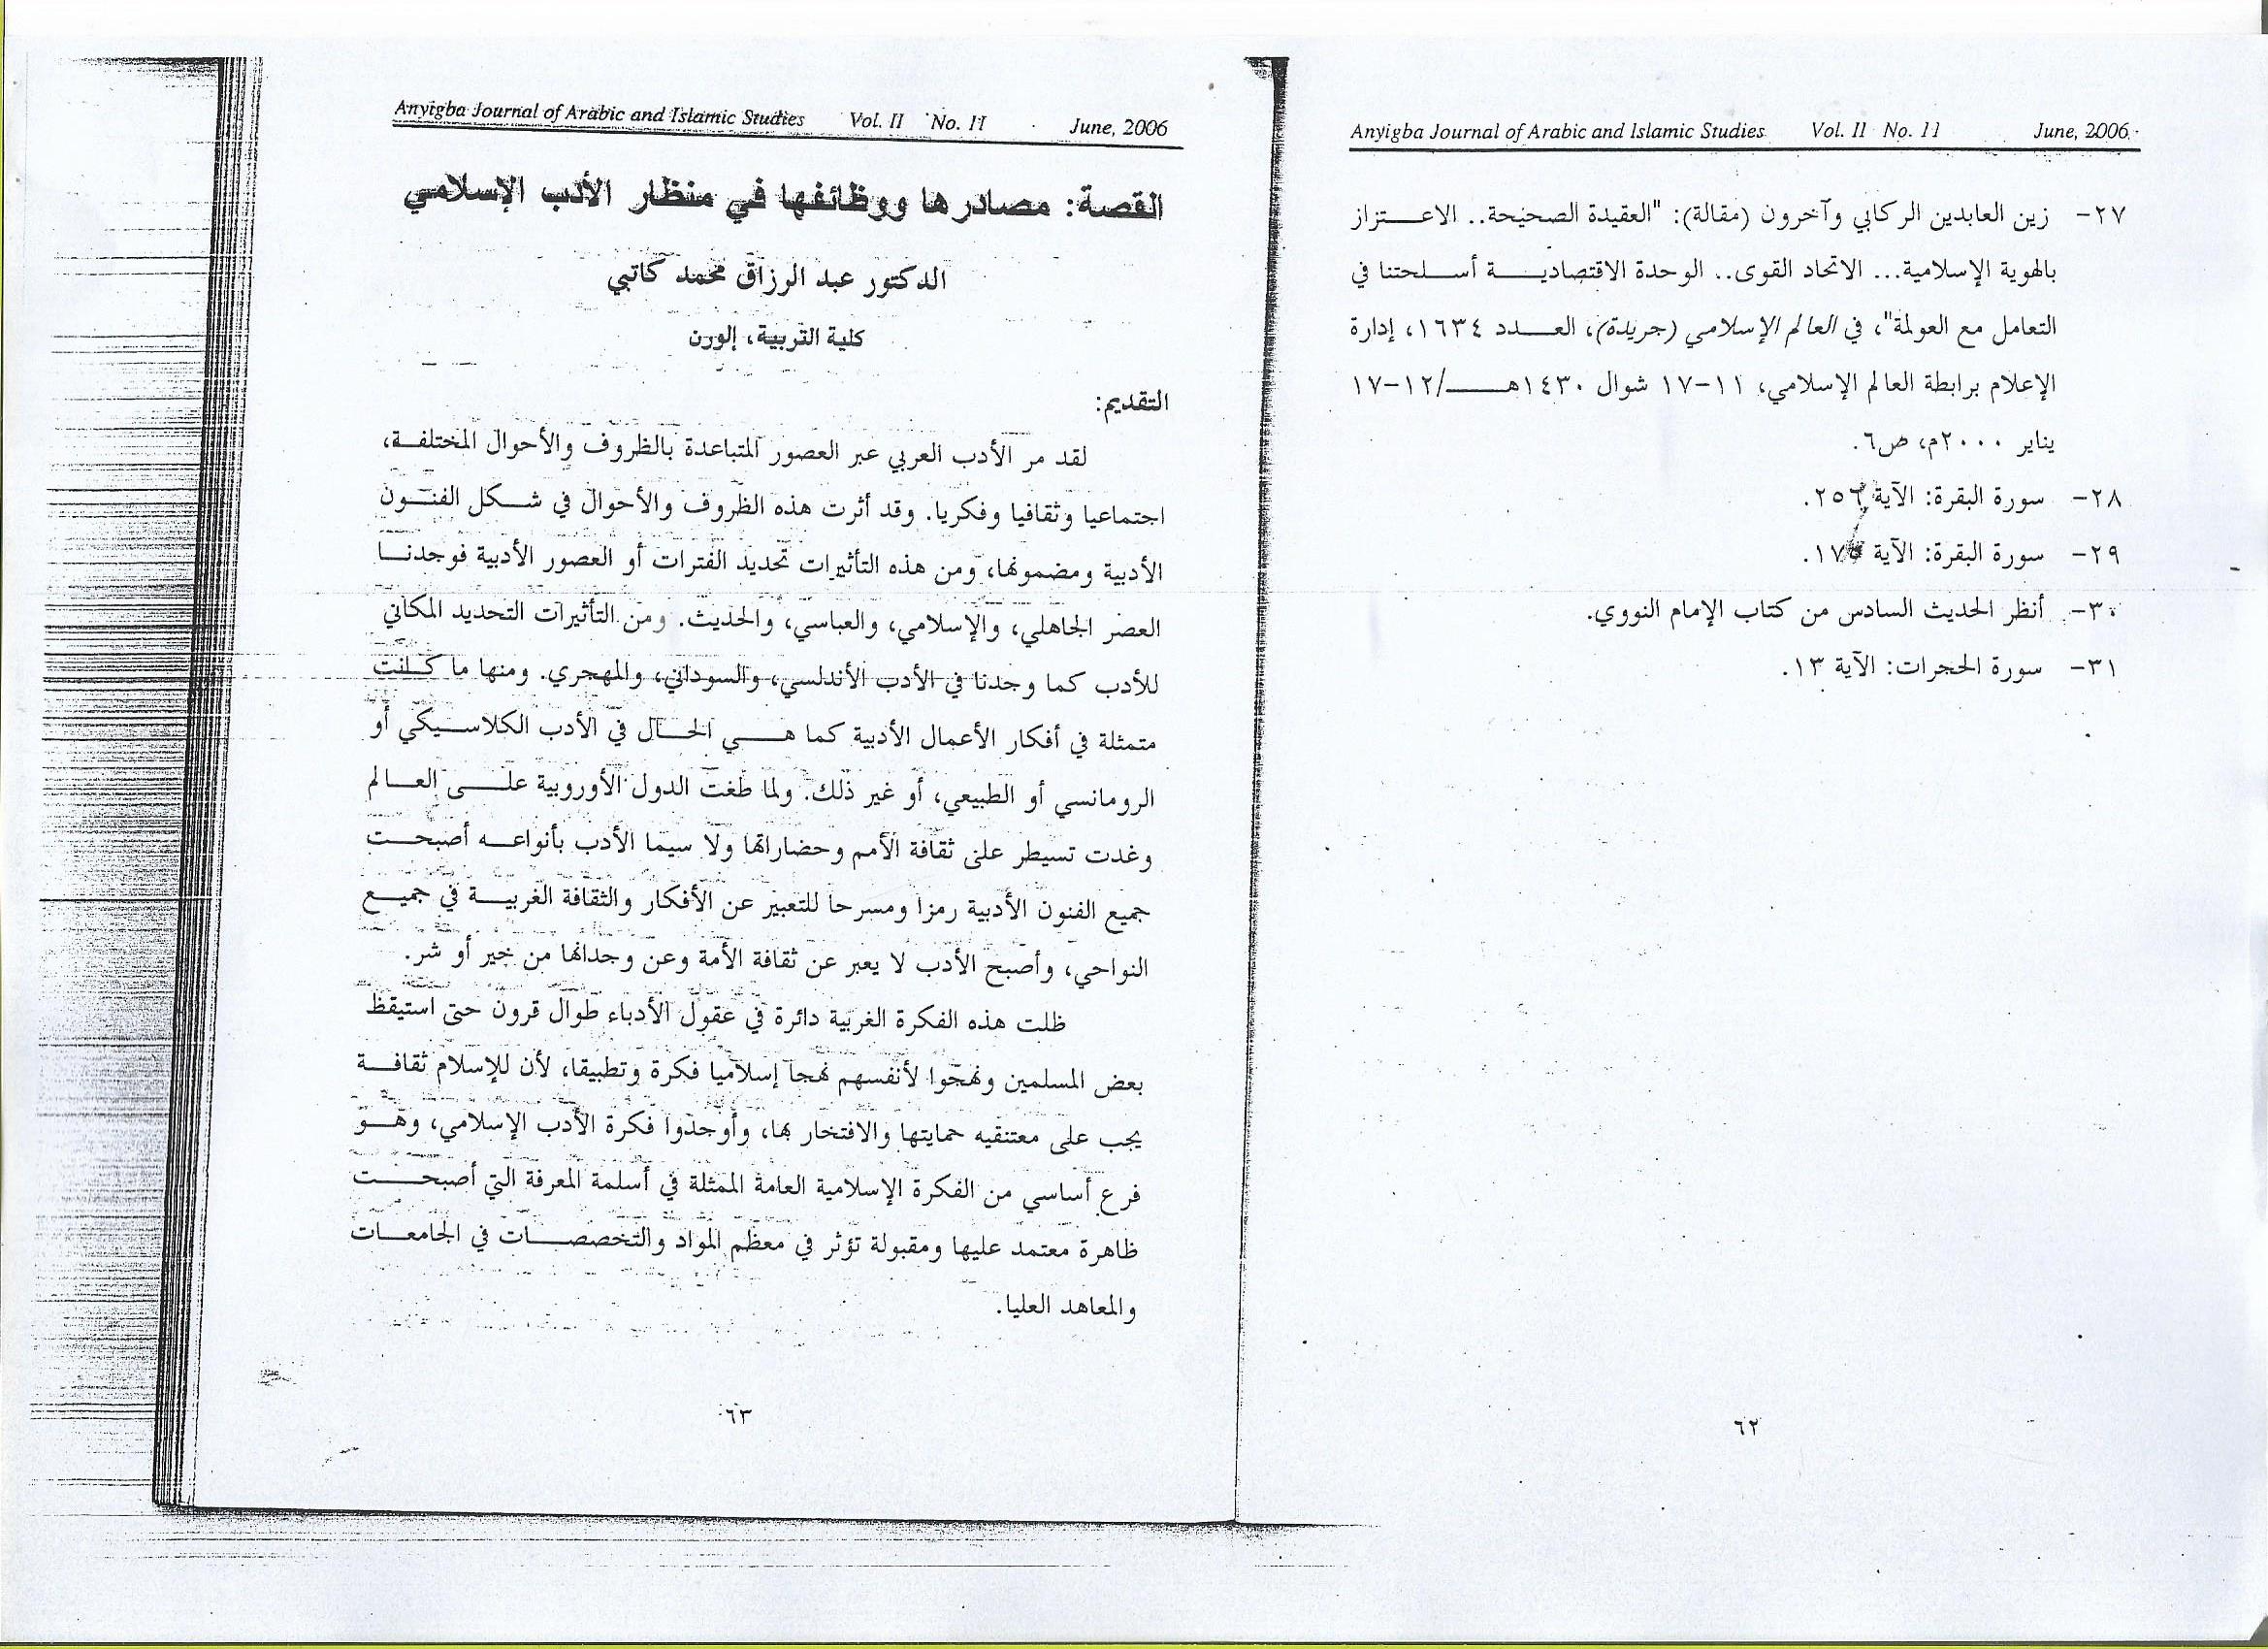 Anyigba Journal of Arabic and Islamic Studies Vol. II No. 11 June, 2006
٢٧- زين العابدين الركابي وآخرون (مقالة): "العقيدة الصحيحة.. الاعـــتزاز
بالهوية الإسلامية... الاتحاد القوى.. الوحدة الاقتصاديــــة أسـلحتنا في
التعامل مع العولمة"، في العالم الإسلامي (جريدة)، العـــدد ١٦٣٤، إدارة
الإعلام برابطة العالم الإسلامي، ١١-١٧ شوال ١٤٣٠هـــــ/١٢-١٧
يناير ٢٠٠٠م، ص٦.
٢٨- سورة البقرة: الآية ٢٥٦.
٢٩- سورة البقرة: الآية
٣٠- أنظر الحديث السادس من كتاب الإمام النووي.
٣١- سورة الحجرات: الآية ١٣.
٦٢
Anyigba Journal of Arabic and Islamic Studies Vol. II No. 11 June, 2006
القصة: مصادرها ووظائفها في منظار الأدب الإسلامي
الدكتور عبد الرزاق محمد كاتبي
كلية التربية، إلورن
التقديم:
لقد مر الأدب العربي عبر العصور المتباعدة بالظروف والأحوال المختلفـة،
اجتماعيا وثقافيا وفكريا. وقد أثرت هذه الظروف والأحوال في شـكل الفنـون
الأدبية ومضمونها، ومن هذه التأثيرات تحديد الفترات أو العصور الأدبية فوجدنـا
العصر الجاهلي، والإسلامي، والعباسي، والحديث. ومن التأثيرات التحديد المكاني
للأدب كما وجدنا في الأدب الأندلسي، والسوداني، والمهجري. ومنها ما كـانت
متمثلة في أفكار الأعمال الأدبية كما هـــي الحـال في الأدب الكلاسـيكي أو
الرومانسي أو الطبيعي، أو غير ذلك. ولما طغت الدول الأوروبية علـــى العـالم
وغدت تسيطر على ثقافة الأمم وحضاراتها ولا سيما الأدب بأنواعـه أصبحـت
جميع الفنون الأدبية رمزا ومسرحا للتعبير عن الأفكار والثقافة الغربيـة في جميـع
النواحي، وأصبح الأدب لا يعبر عن ثقافة الأمة وعن وجدانها من خير أو شر.
ظلت هذه الفكرة الغربية دائرة في عقول الأدباء طوال قرون حتى استيقظ
بعض المسلمين ونهجوا لأنفسهم نهجا إسلاميا فكرة وتطبيقا، لأن للإسلام ثقافـة
يجب على معتنقيه حمايتها والافتخار بها، وأوجدوا فكرة الأدب الإسلامي، وهـو
فرع أساسي من الفكرة الإسلامية العامة الممثلة في أسلمة المعرفة التي أصبحـــت
ظاهرة معتمد عليها ومقبولة تؤثر في معظم المواد والتخصصـــات في الجامعـات
والمعاهد العليا.
٦٣